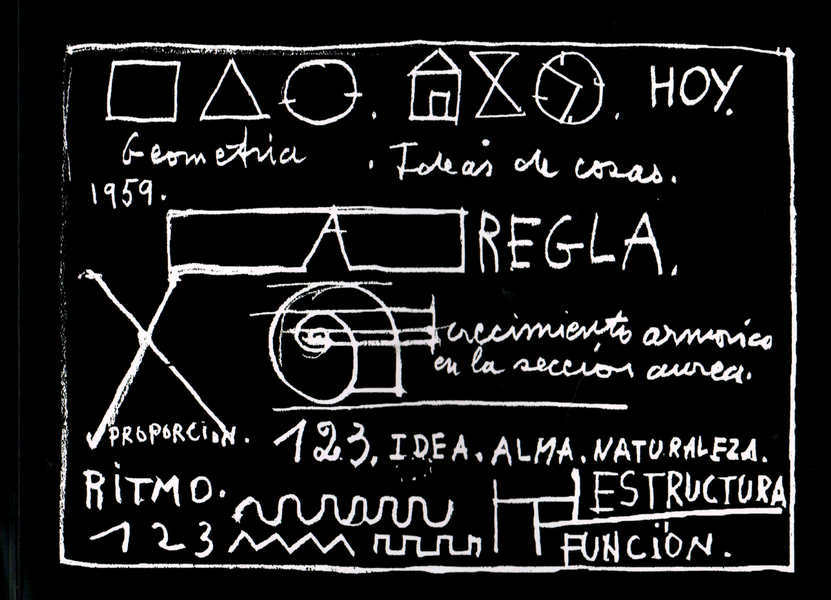 HOY.
Geometria . Ideas de cosas.
1959.
A REGLA.
crecimiento armonico
en la sección aurea.
PROPORCION. 123. IDEA. ALMA. NATURALEZA.
RiTMO. ESTRUCTURA
1 2 3 FUNCiÓN.